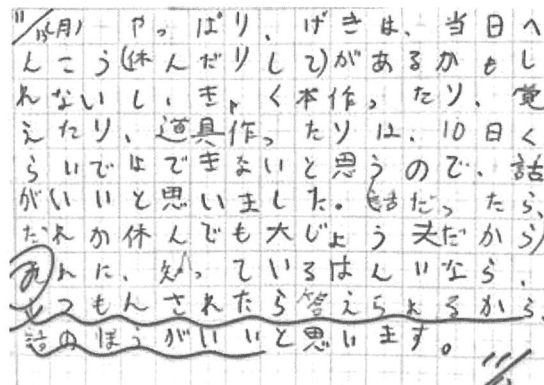 11/15(月) やっぱり、げきは、当日へ
んこう(休んだりして)があるかもし
れないし、きゃく本作ったり、覚
えたり、道具作ったりは、10日く
らいではできないと思うので、話
がいいと思いました。(話だったら、
だれか休んでも大じょう夫だから)
それに、知っているはんいなら、
しつもんされたら答えられるから、
話のほうがいいと思います。